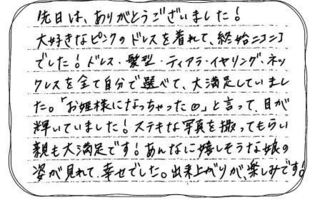 先日は、ありがとうございました!
大好きなピンクのドレスを着れて、終始ニコニコ
でした!ドレス・髪型・ティアラ・イヤリング、ネッ
クレスを全て自分で選べて、大満足していまし
た。「お姫様になっちゃった」と言って、目が
輝いていました!ステキな写真を撮ってもらい
親も大満足です!あんなに嬉しそうな娘の
姿が見れて、幸せでした。出来上がりが、楽しみです!